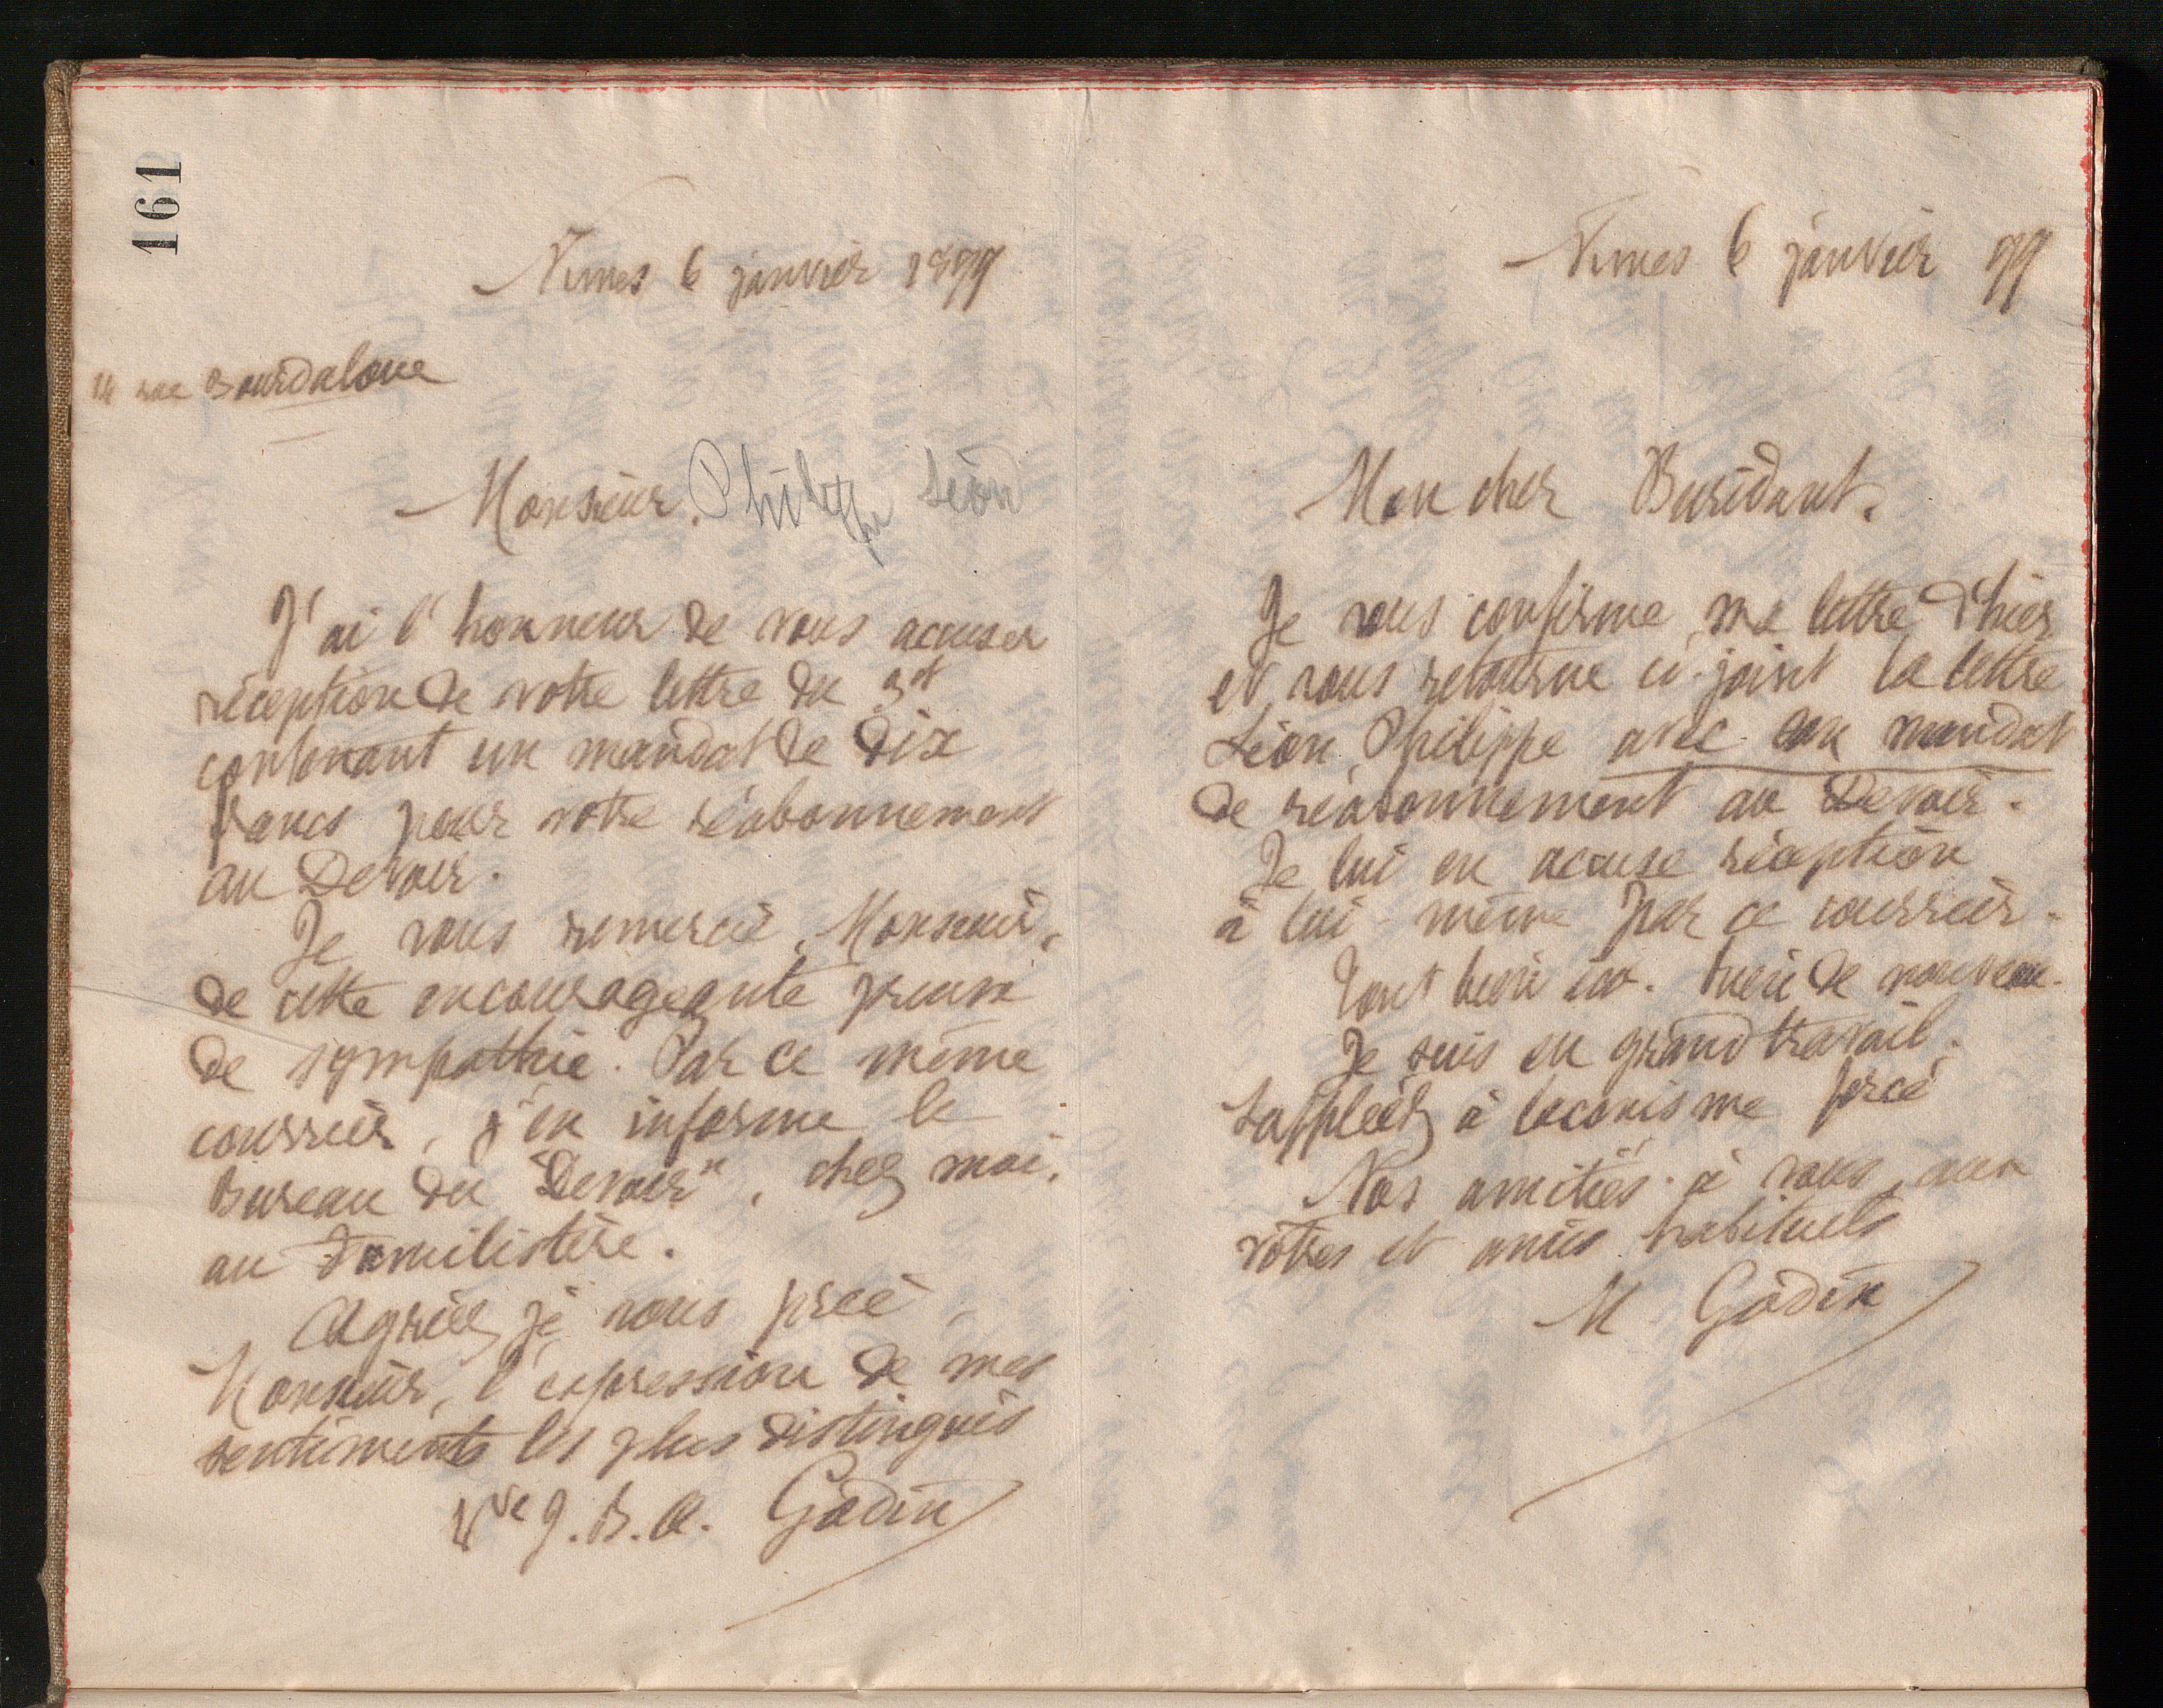 161
Nîmes 6 janvier 1899
14 rue Bourdaloue
Monsieur. Philippe Léon
J'ai l'honneur de vous accuser
réception de votre lettre du 3 ct
contenant un mandat de dix
francs pour votre réabonnement
au Devoir.
Je vous remercie, Monsieur,
de cette encourageante preuve
de sympathie. Par ce même
courrier, j'en informe le
Bureau du "Devoir", chez moi,
au Familistère.
Agréez, je vous prie,
Monsieur, l'expression de mes
sentiments les plus distingués
Vve J. B. A. Godin
Nîmes 6 janvier 99
Mon cher Buridant.
Je vous confirme ma lettre d'hier
et vous retourne ci-joint la lettre
Léon Philippe avec son mandat
de réabonnement au Devoir.
Je lui en accuse réception
à lui-même par ce courrier.
Tout bien ici. Rien de nouveau.
Je suis en grand travail.
Suppléez à laconisme forcé
Nos amitiés à vous, aux
vôtres et amis habituels
M Godin